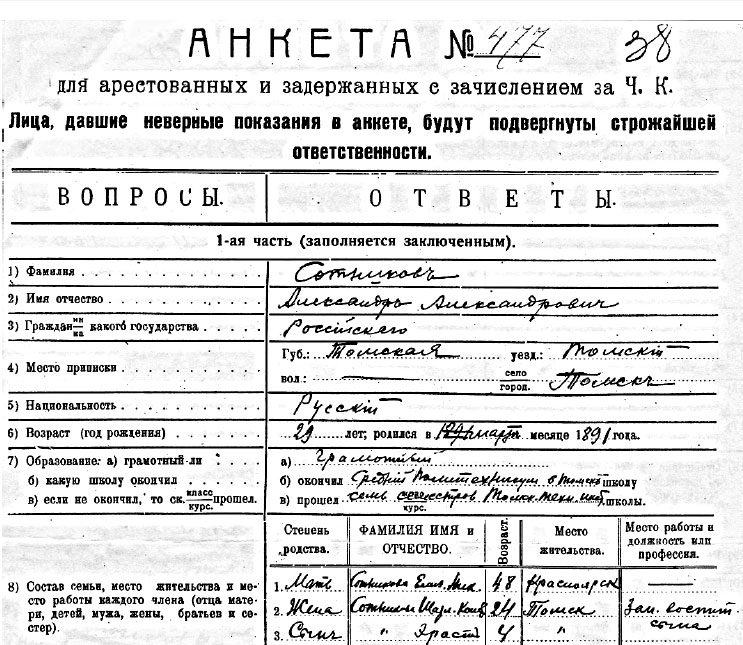 АНКЕТА № 477 38
для арестованных и задержанных с зачислением за Ч. К.
Лица, давшие неверные показания в анкете, будут подвергнуты строжайшей
ответственности.
ВОПРОСЫ. ОТВЕТЫ.
1-ая часть (заполняется заключенным).
1) Фамилия Сотниковъ
2) Имя отчество Александръ Александрович
3) Граждан ин/ка какого государства Российскаго
4) Место приписки Губ.: Томская уезд.: Томскій
вол: — село/город. Томскъ
5) Национальность Русскій
6) Возраст (год рождения) 29 лет; родился в марта месяце 1891 года.
7) Образование: а) грамотный-ли а) Грамотный
б) какую школу окончил б) окончил Средний Политехникум в Томске школу
в) если не окончил, то ск. класс/курс. прошел. в) прошел семь семестров курс. школы.
8) Состав семьи, место жительства и место работы каждого члена (отца матери, детей, мужа, жены, братьев и сестер).
Степень родства. ФАМИЛИЯ ИМЯ и ОТЧЕСТВО. Возраст. Место жительства. Место работы и должность или профессия.
1. Мать Сотникова 48 Красноярск —
2. Жена Сотникова 24 Томск
3. Сынъ " Эраст 4 "